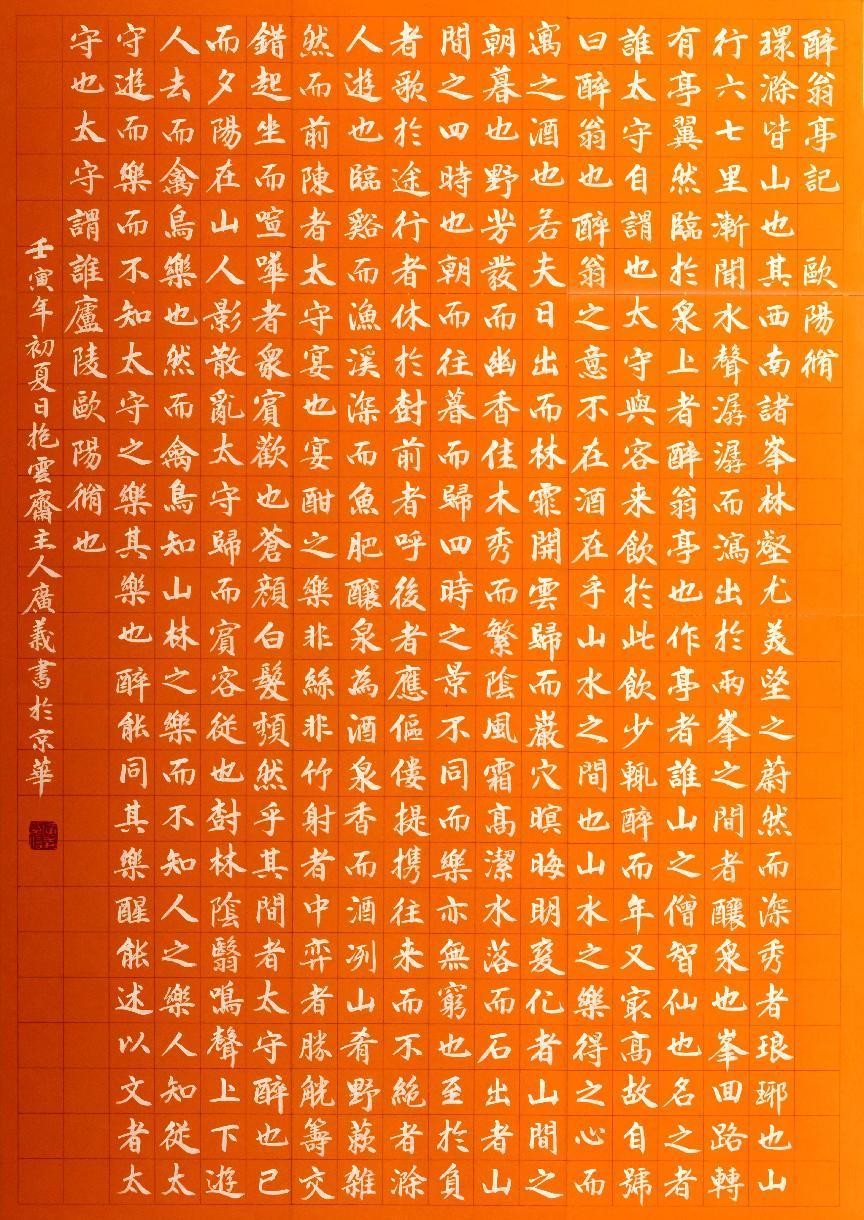 醉翁亭記 歐陽脩
環滁皆山也其西南諸峯林壑尤美望之蔚然而深秀者琅琊也山
行六七里漸聞水聲潺潺而瀉出於兩峯之間者釀泉也峯回路轉
有亭翼然臨於泉上者醉翁亭也作亭者誰山之僧智仙也名之者
誰太守自謂也太守與客来飲於此飲少輒醉而年又冣高故自號
曰醉翁也醉翁之意不在酒在乎山水之間也山水之樂得之心而
寓之酒也若夫日出而林霏開雲歸而巖穴暝晦明變化者山間之
朝暮也野芳發而幽香佳木秀而繁陰風霜高潔水落而石出者山
間之四時也朝而往暮而歸四時之景不同而樂亦無窮也至於負
者歌於途行者休於樹前者呼後者應傴僂提携往来而不絶者滁
人遊也臨谿而漁溪深而魚肥釀泉為酒泉香而酒冽山肴野蔌雜
然而前陳者太守宴也宴酣之樂非絲非竹射者中弈者勝觥籌交
錯起坐而喧嘩者衆賓歡也蒼顏白髮頹然乎其間者太守醉也已
而夕陽在山人影散亂太守歸而賓客從也樹林陰翳鳴聲上下遊
人去而禽鳥樂也然而禽鳥知山林之樂而不知人之樂人知從太
守遊而樂而不知太守之樂其樂也醉能同其樂醒能述以文者太
守也太守謂誰廬陵歐陽脩也
壬寅年初夏日抱雲齋主人廣義書於京華